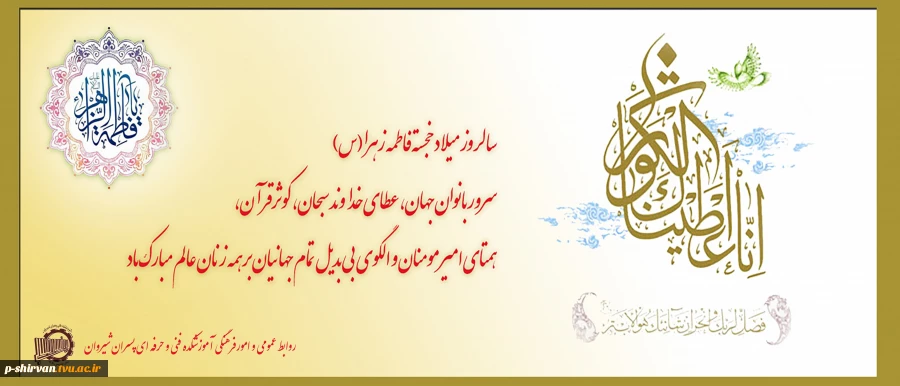 یا فاطمة الزهرا
سالروز میلاد خجسته فاطمه زهرا (س)
سرور بانوان جهان، عطای خداوند سبحان، کوثر قرآن،
همتای امیر مومنان و الگوی بی بدیل تمام جهانیان بر همه زنان عالم مبارک باد
إنا أعطیناک الکوثر
فصل لربک وانحر إن شانئک هو الابتر
روابط عمومی و امور فرهنگی آموزشکده فنی و حرفه ای پسران شیروان
p-shirvan.tvu.ac.ir